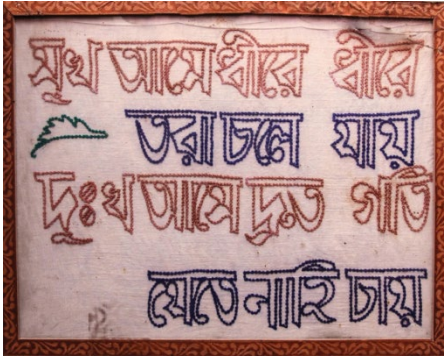 সুখ আসে ধীরে ধীরে
তরা চলে যায়
দুঃখ আসে দ্রুত গতি
যেতে নাহি চায়